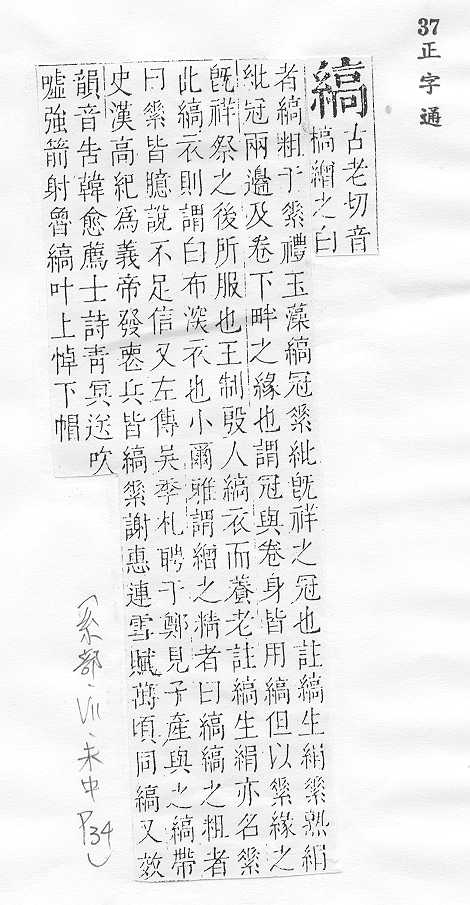 37正字通
縞
古老切音
槁繒之白
者縞粗于素禮玉藻縞冠素紕旣祥之冠也註縞生絹素熟絹
紕冠兩邊及卷下畔之緣也謂冠與卷身皆用縞但以素緣之
旣祥祭之後所服也王制殷人縞衣而養老註縞生絹亦名素
此縞衣則謂白布深衣也小爾雅謂繒之精者曰縞縞之粗者
曰素皆臆說不足信又左傳吳季札聘于鄭見子產與之縞帶
史漢高紀爲義帝發喪兵皆縞素謝惠連雪賦萬頃同縞又效
韻音告韓愈薦士詩靑冥送吹
噓強箭射魯縞叶上悼下帽
(糸部、VII、未中 P34)